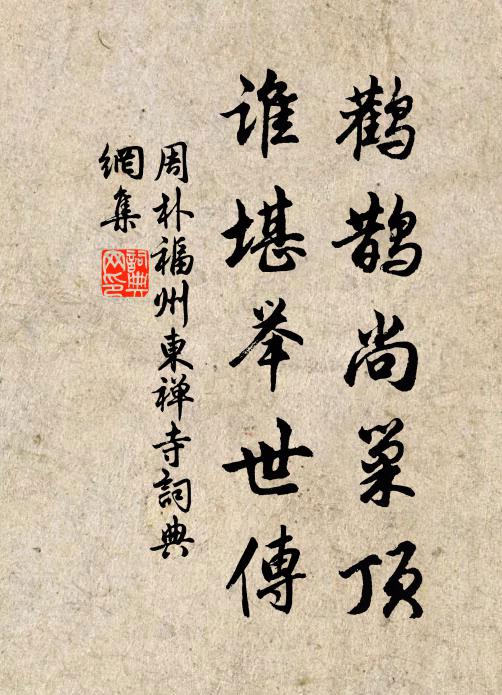 鹳鹊尚巢顶
谁堪举世傳
周朴福州東禅寺詞典
網集
詞典
网印